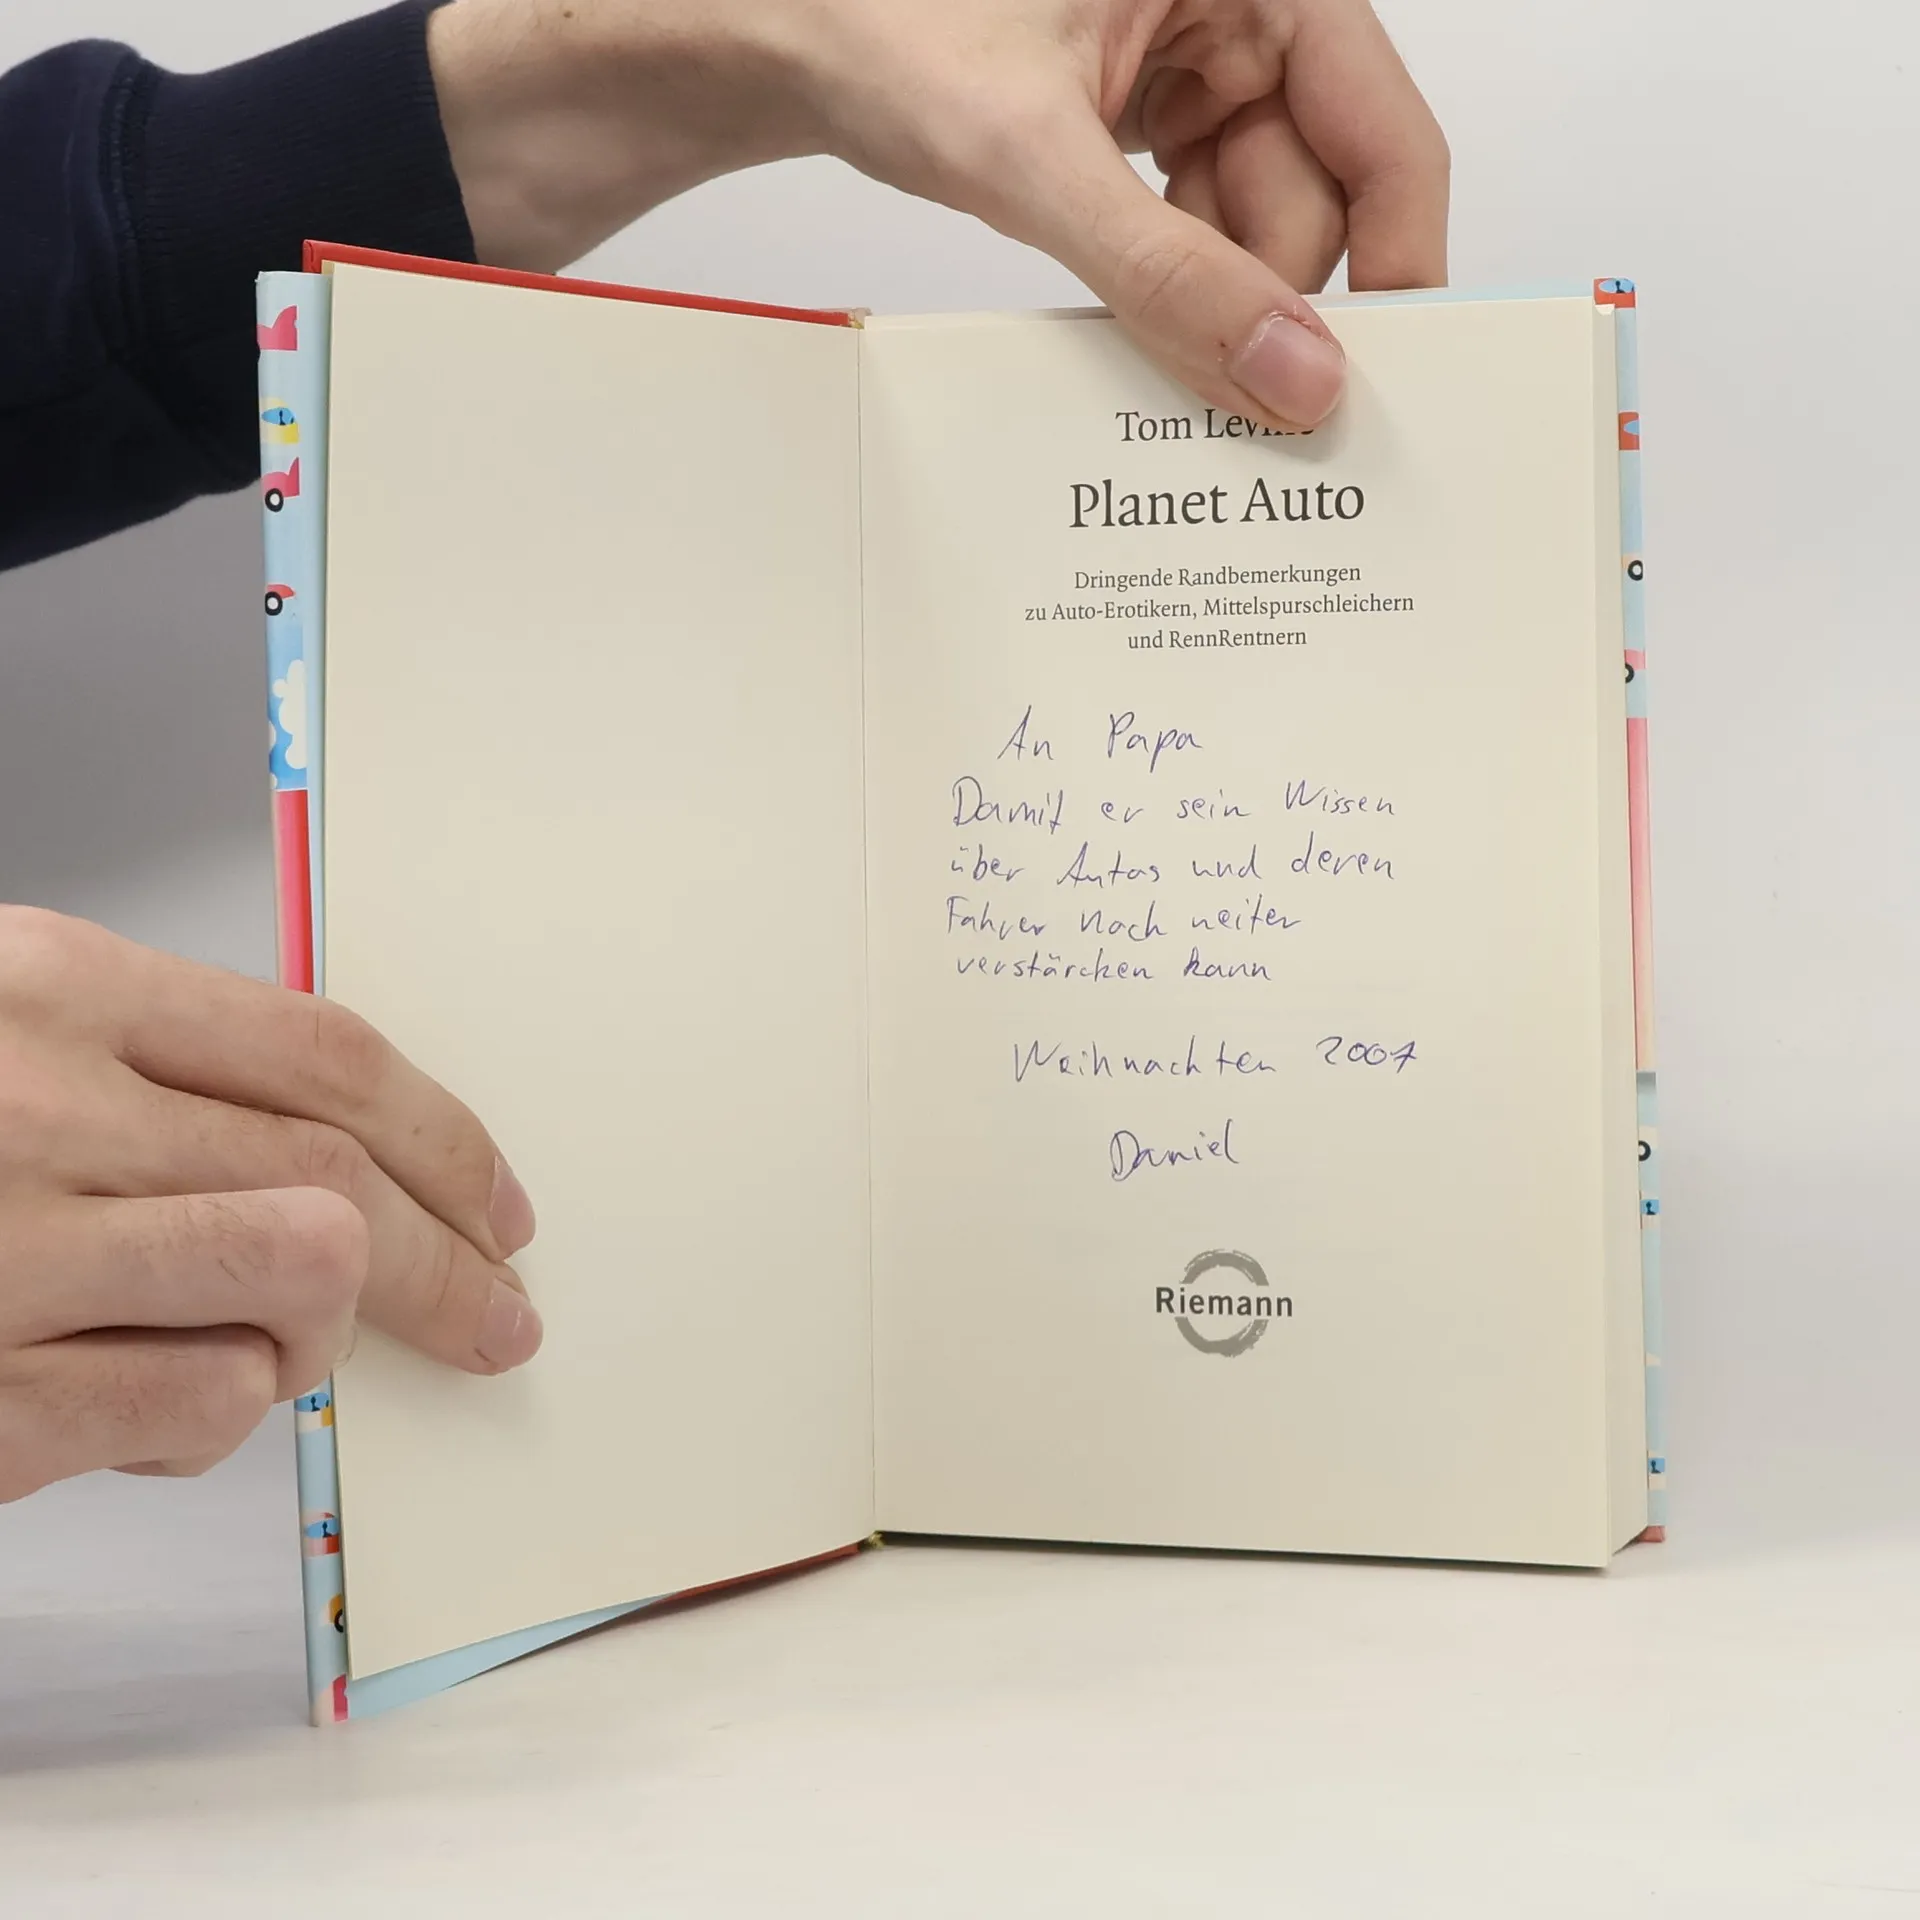 Tom
Planet Auto
Dringende Randbemerkungen
zu Auto-Erotikern, Mittelspurschleichern
und RennRentnern
An Papa
Damit er sein Wissen
über Autos und deren
Fahrer noch weiter
verstärcken kann
Weihnachten 2007
Daniel
Riemann